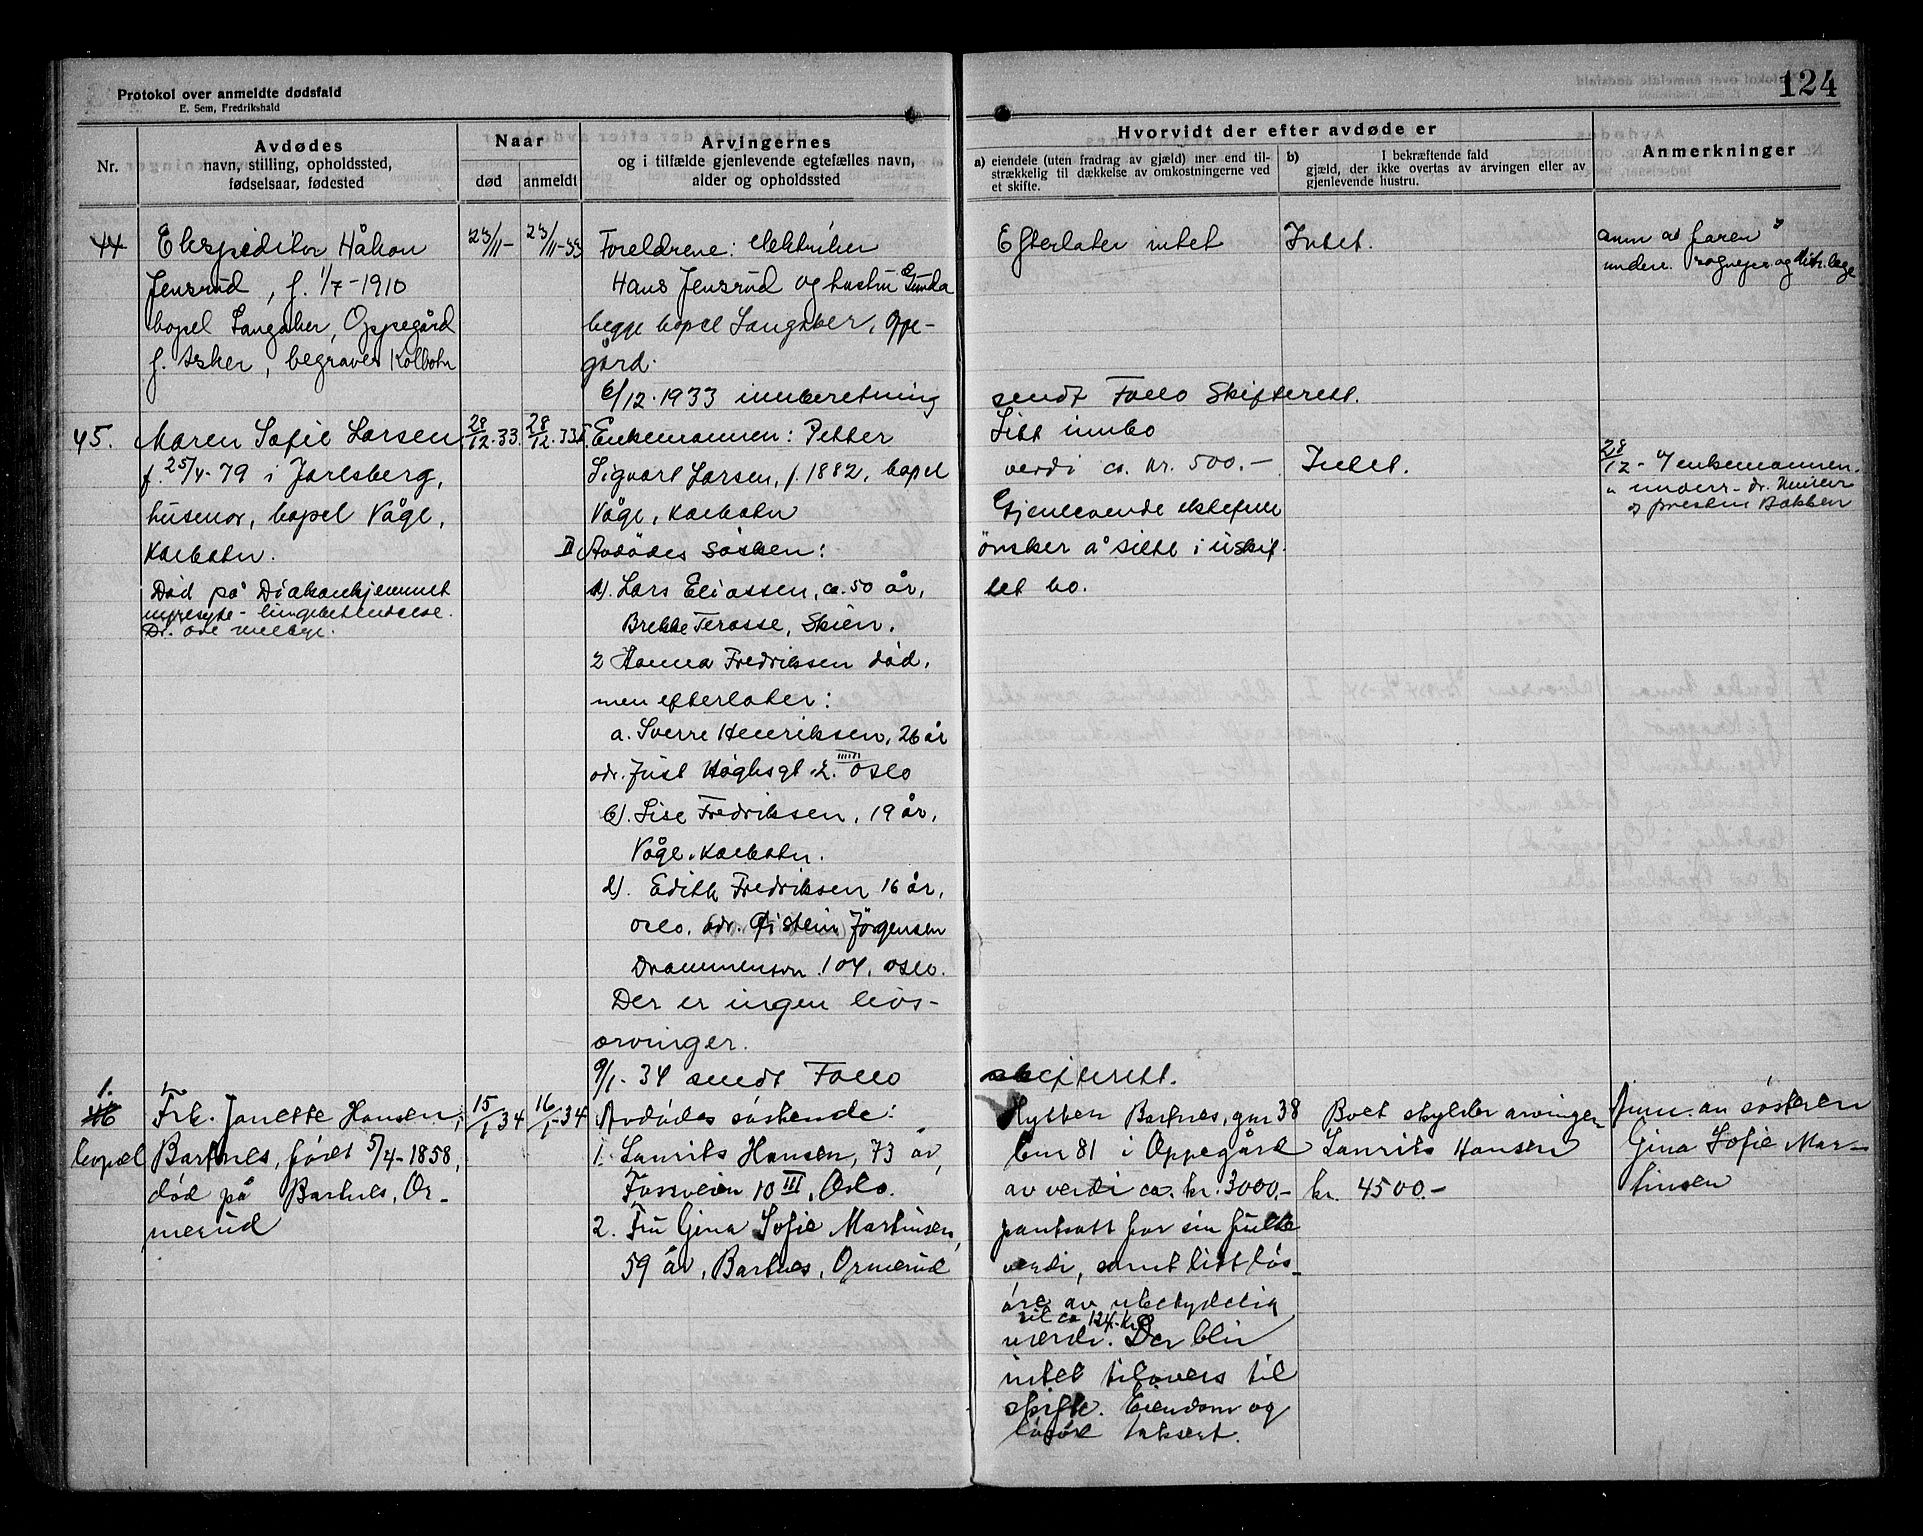 124
Protokol over anmeldte dødsfald
E. Sem, Fredrikshald
Nr.
Avdødes
navn, stilling, opholdssted,
fødselsaar, fødested
Naar
død
anmeldt
Arvingernes
og i tilfælde gjenlevende egtefælles navn,
alder og opholdssted
Hvorvidt der efter avdøde er
a) eiendele (uten fradrag av gjæld) mer end til-
strækkelig til dækkelse av omkostningerne ved
et skifte.
b) I bekræftende fald
gjæld, der ikke overtas av arvingen eller av
gjenlevende hustru.
Anmerkninger
44
Ekspeditør Håkon
Jensrud, f. 1/7-1910
bopel Langaker, Oppegård
f. Asker, begraves Kolbotn
23/11-
23/11-33
Foreldrene: elektriker
Hans Jensrud og hustru Gunda
begge bopel Langaker, Oppe-
gård.
6/12.1933 innberetning
Efterlater intet
Intet.
anm av faren
underr. sognepr. og distr.lege
sendt Follo Skifterett.
45.
Maren Sofie Larsen
f. 25/4-79 i Jarlsberg,
husmor, bopel Våge,
Kolbotn.
Død på Diakonhjemmet
nyresyke - lungebetendelse.
28/12.33.
28/12.33
I. Enkemannen: Petter
Sigvart Larsen, f. 1882, bopel
Våge, Kolbotn
II Avdødes søsken:
1). Lars Eliassen, ca. 50 år,
Brekke Terasse, Skien.
2 Hanna Fredriksen død,
men efterlater:
a. Sverre Henriksen, 26 år
adr. Just Høghsgt 2. Oslo
b). Lise Fredriksen, 19 år,
Våge, Kolbotn.
d). Edith Fredriksen 16 år,
Oslo, adr. Øistein Jörgensen
Drammensvn. 104, Oslo.
Der er ingen livs-
arvinger.
9/1-34 sendt Follo
Litt innbo
verdi ca. kr. 500.-
Gjenlevende ektefelle
ønsker å sitte i uskif-
tet bo.
Intet.
28/12- af enkemannen.
" underr. dr.
og presten Bakken
skifterett.
1.
46
bopæl
Frk. Janette Hansen,
Bartnes, født 5/4-1858,
død på Bartnes, Or-
merud
15/1 34
16/1-34
Avdødes søskende:
1. Laurits Hansen, 73 år,
Fossveien 10 III, Oslo.
2. Fru Gina Sofie Martinsen,
59 år, Bartnes, Ormerud
Hytten Bartnes, gnr 38
bnr 81 i Oppegård
av verdi ca. kr. 3000.-
pantsatt for sin fulle
verdi, samt litt løs-
øre av ubetydelig
til ca 124 kr
værdi. Der blir
intet tilovers til
skifte. Eiendom og
løsøre taksert.
Boet skylder arvingen
Laurits Hansen
kr. 4500.-
Anm. av søsteren
Gina Sofie Mar-
tinsen